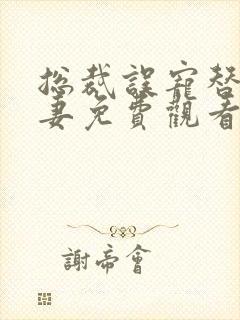 总裁誤寵替
妻免費觀看
謝帝會